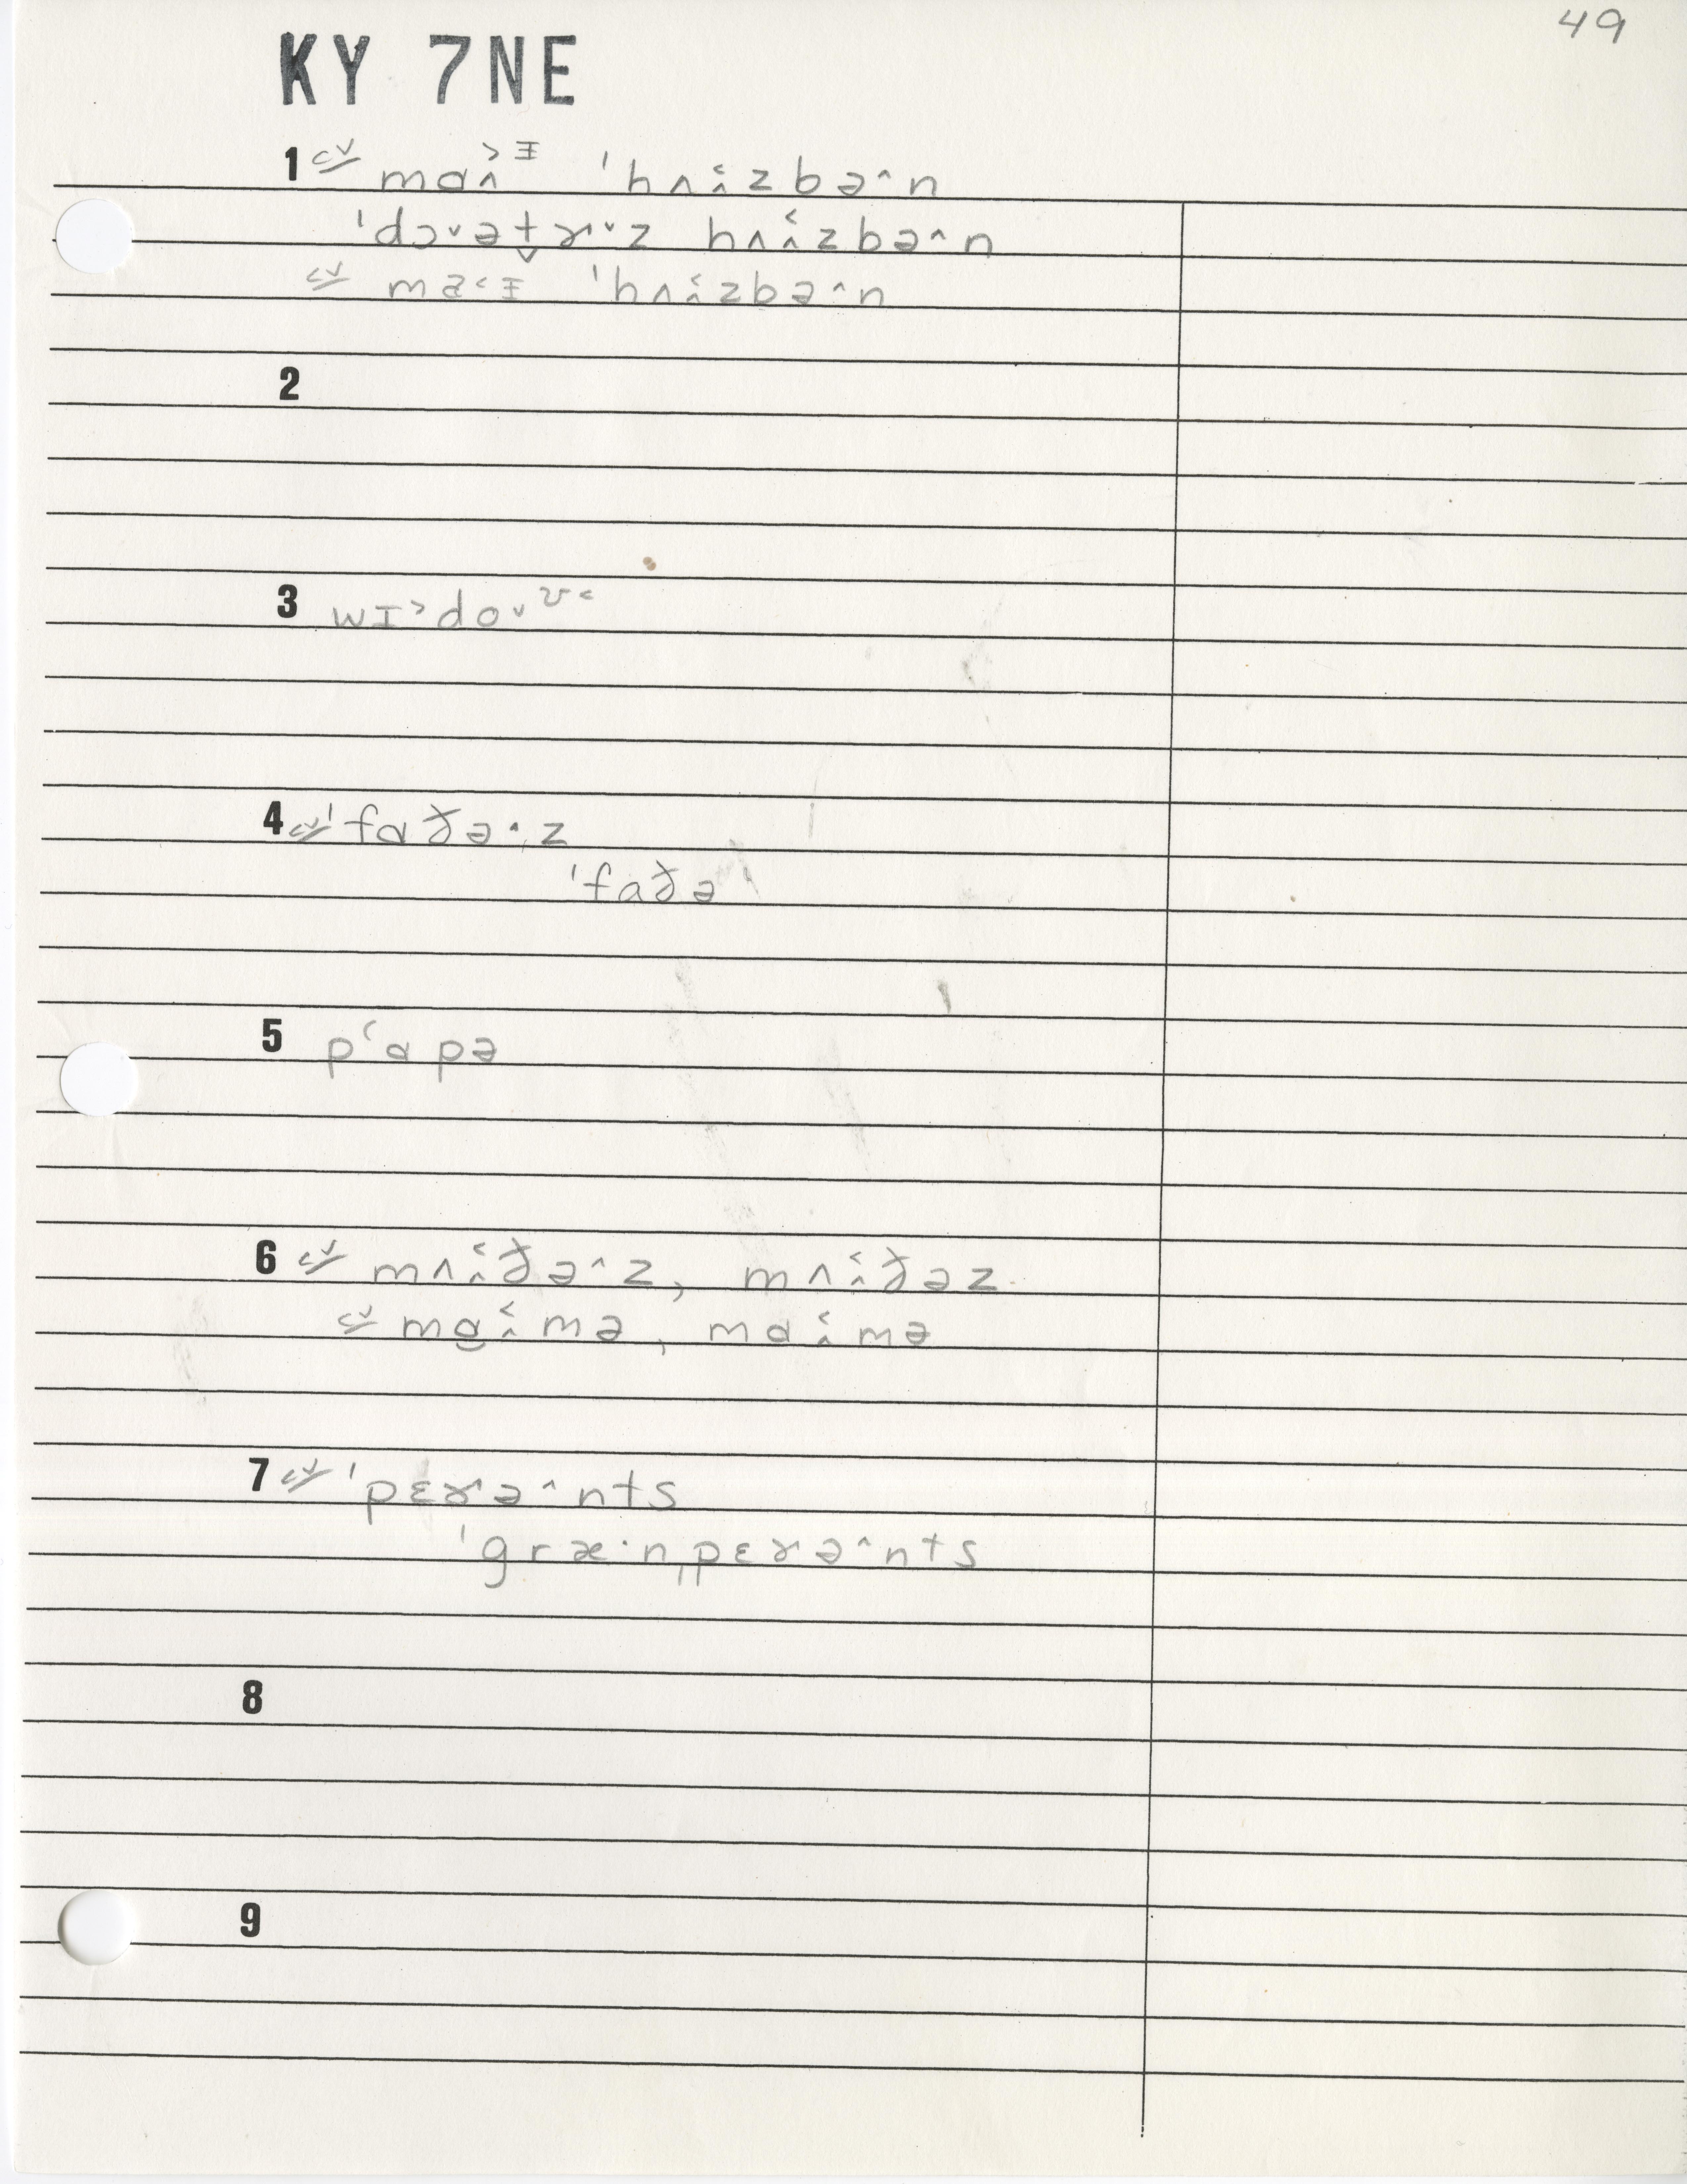 49
KY 7NE
1 cv mɑ˄˃ᵻ ˈhʌ˄˂zbə^n
ˈdɔ˅ət̬ɚ˅z hʌ˄˂zbə^n
cv ma˂ᵻ ˈhʌ˄˂zbə^n
2
3 wɪ˃do˅ʊ˂
4 cv ˈfɑðə^z
ˈfaðə
5 pʻɑpə
6 cv mʌ˄˂ðə^z, mʌ˄˂ðəz
cv mɑ̮˄˂mə, mɑ˄˂mə
7 cv ˈpɛɚə^nts
ˈgræ·nˌˌpɛɚə^nts
8
9